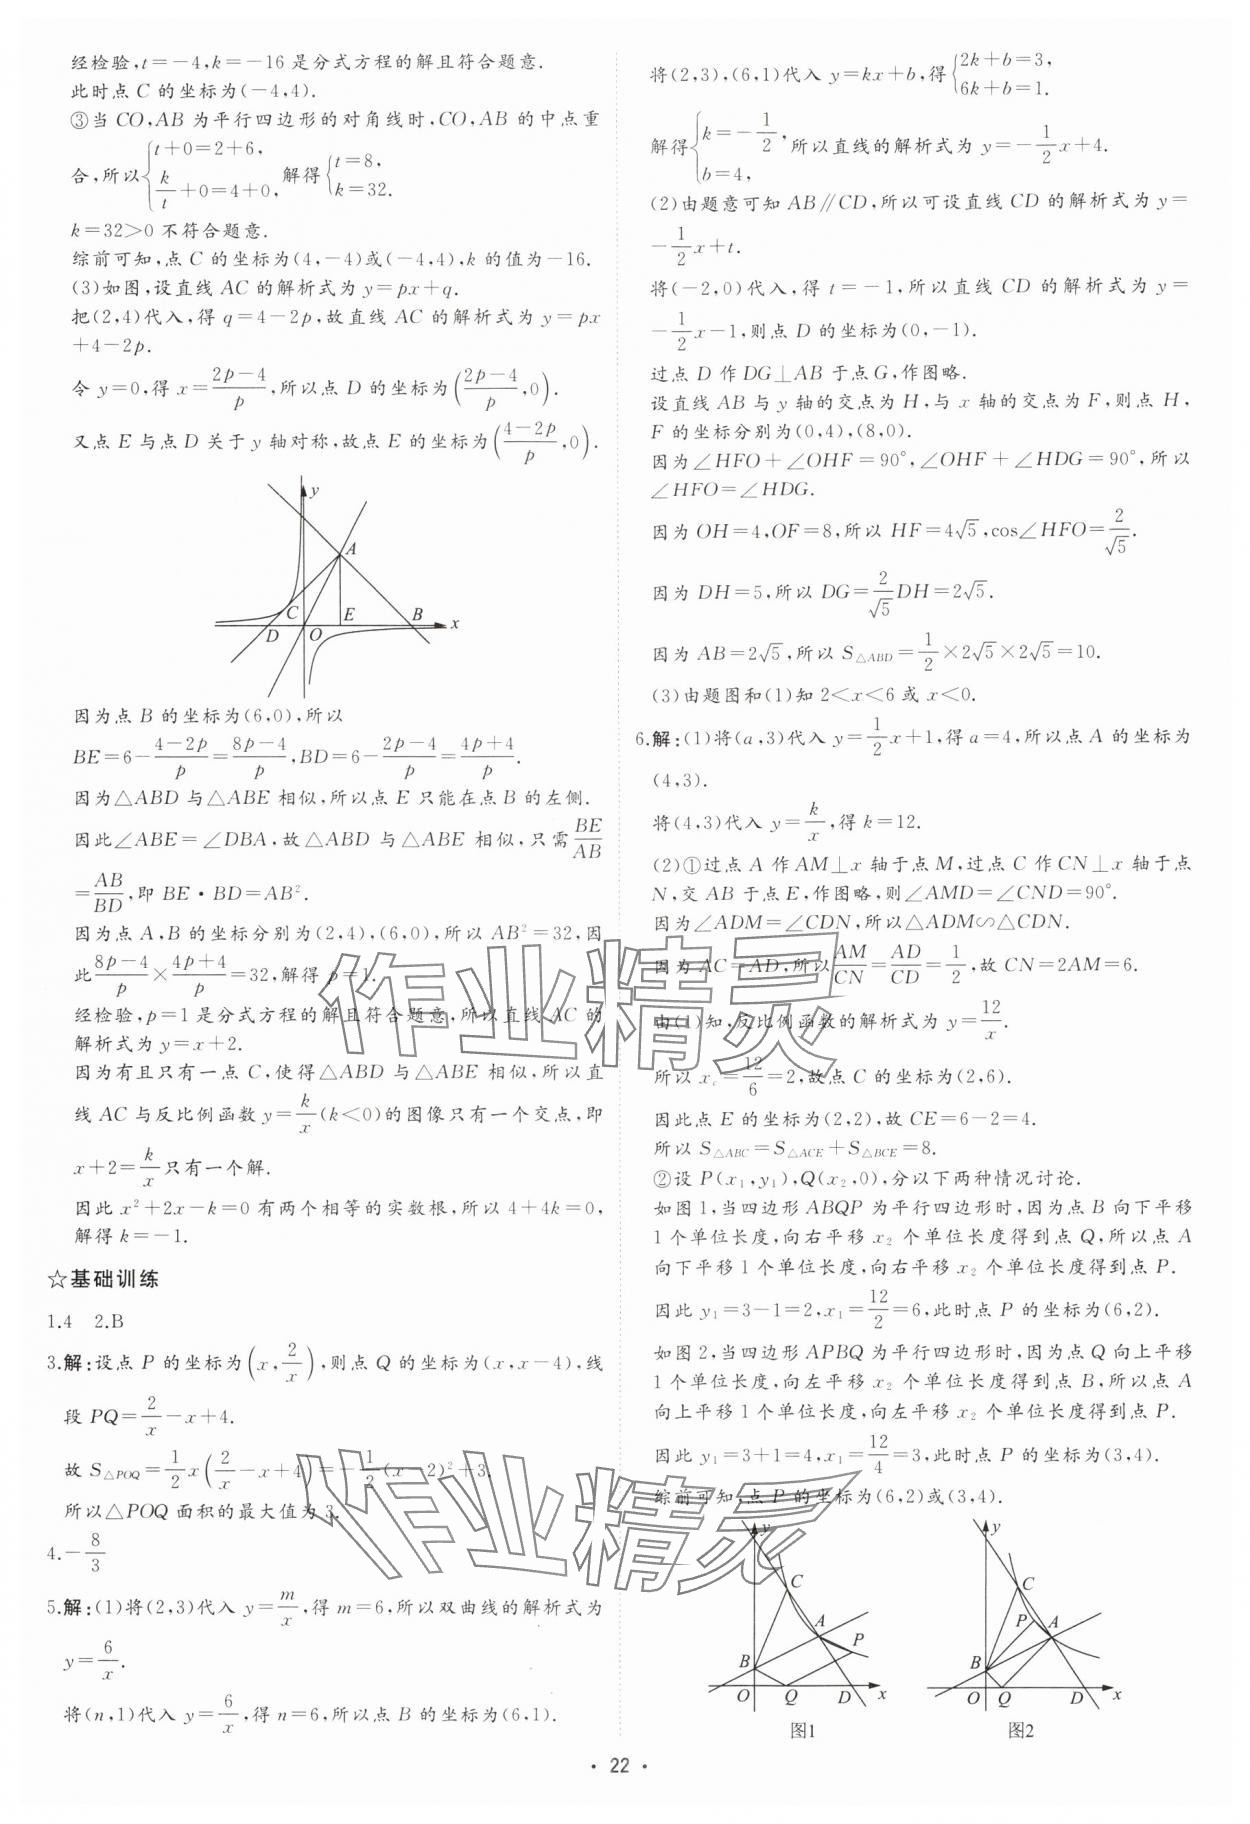 经检验,t=-4,k=-16 是分式方程的解且符合题意.
此时点 C 的坐标为(-4,4).
③当 CO,AB 为平行四边形的对角线时,CO,AB 的中点重
合,所以{t+0=2+6, k/t+0=4+0, 解得{t=8, k=32.
k=32>0 不符合题意.
综前可知,点 C 的坐标为(4,-4)或(-4,4),k 的值为-16.
(3)如图,设直线 AC 的解析式为 y=px+q.
把(2,4)代入,得 q=4-2p,故直线 AC 的解析式为 y=px
+4-2p.
令 y=0,得 x=(2p-4)/p,所以点 D 的坐标为((2p-4)/p,0).
又点 E 与点 D 关于 y 轴对称,故点 E 的坐标为((4-2p)/p,0).
y
A
C
D O E B x
因为点 B 的坐标为(6,0),所以
BE=6-(4-2p)/p=(8p-4)/p,BD=6-(2p-4)/p=(4p+4)/p.
因为△ABD 与△ABE 相似,所以点 E 只能在点 B 的左侧.
因此∠ABE=∠DBA,故△ABD 与△ABE 相似,只需BE/AB
=AB/BD,即 BE·BD=AB².
因为点 A,B 的坐标分别为(2,4),(6,0),所以 AB²=32,因
此(8p-4)/p×(4p+4)/p=32,解得 p=1.
经检验,p=1 是分式方程的解且符合题意,所以直线 AC 的
解析式为 y=x+2.
因为有且只有一点 C,使得△ABD 与△ABE 相似,所以直
线 AC 与反比例函数 y=k/x(k<0)的图像只有一个交点,即
x+2=k/x只有一个解.
因此 x²+2x-k=0 有两个相等的实数根,所以 4+4k=0,
解得 k=-1.
☆基础训练
1.4 2.B
3.解:设点 P 的坐标为(x,2/x),则点 Q 的坐标为(x,x-4),线
段 PQ=2/x-x+4.
故 S△POQ=1/2x(2/x-x+4)=-1/2(x-2)²+3.
所以△POQ 面积的最大值为 3.
4.-8/3
5.解:(1)将(2,3)代入 y=m/x,得 m=6,所以双曲线的解析式为
y=6/x.
将(n,1)代入 y=6/x,得 n=6,所以点 B 的坐标为(6,1).
将(2,3),(6,1)代入 y=kx+b,得{2k+b=3, 6k+b=1.
解得{k=-1/2, b=4, 所以直线的解析式为 y=-1/2x+4.
(2)由题意可知 AB∥CD,所以可设直线 CD 的解析式为 y=
-1/2x+t.
将(-2,0)代入,得 t=-1,所以直线 CD 的解析式为 y=
-1/2x-1,则点 D 的坐标为(0,-1).
过点 D 作 DG⊥AB 于点 G,作图略.
设直线 AB 与 y 轴的交点为 H,与 x 轴的交点为 F,则点 H,
F 的坐标分别为(0,4),(8,0).
因为∠HFO+∠OHF=90°,∠OHF+∠HDG=90°,所以
∠HFO=∠HDG.
因为 OH=4,OF=8,所以 HF=4√5,cos∠HFO=2/√5.
因为 DH=5,所以 DG=2/√5DH=2√5.
因为 AB=2√5,所以 S△ABD=1/2×2√5×2√5=10.
(3)由题图和(1)知 2<x<6 或 x<0.
6.解:(1)将(a,3)代入 y=1/2x+1,得 a=4,所以点 A 的坐标为
(4,3).
将(4,3)代入 y=k/x,得 k=12.
(2)①过点 A 作 AM⊥x 轴于点 M,过点 C 作 CN⊥x 轴于点
N,交 AB 于点 E,作图略,则∠AMD=∠CND=90°.
因为∠ADM=∠CDN,所以△ADM∽△CDN.
因为 AC=AD,所以AM/CN=AD/CD=1/2,故 CN=2AM=6.
由(1)知,反比例函数的解析式为 y=12/x.
所以 x_c=12/6=2,故点 C 的坐标为(2,6).
因此点 E 的坐标为(2,2),故 CE=6-2=4.
所以 S△ABC=S△ACE+S△BCE=8.
②设 P(x₁,y₁),Q(x₂,0),分以下两种情况讨论.
如图 1,当四边形 ABQP 为平行四边形时,因为点 B 向下平移
1 个单位长度,向右平移 x₂ 个单位长度得到点 Q,所以点 A
向下平移 1 个单位长度,向右平移 x₂ 个单位长度得到点 P.
因此 y₁=3-1=2,x₁=12/2=6,此时点 P 的坐标为(6,2).
如图 2,当四边形 APBQ 为平行四边形时,因为点 Q 向上平移
1 个单位长度,向左平移 x₂ 个单位长度得到点 B,所以点 A
向上平移 1 个单位长度,向左平移 x₂ 个单位长度得到点 P.
因此 y₁=3+1=4,x₁=12/4=3,此时点 P 的坐标为(3,4).
综前可知,点 P 的坐标为(6,2)或(3,4).
y
C
A
P
B
O Q D x
图1
y
C
P A
B
O Q D x
图2
作业精灵
作业精灵
· 22 ·